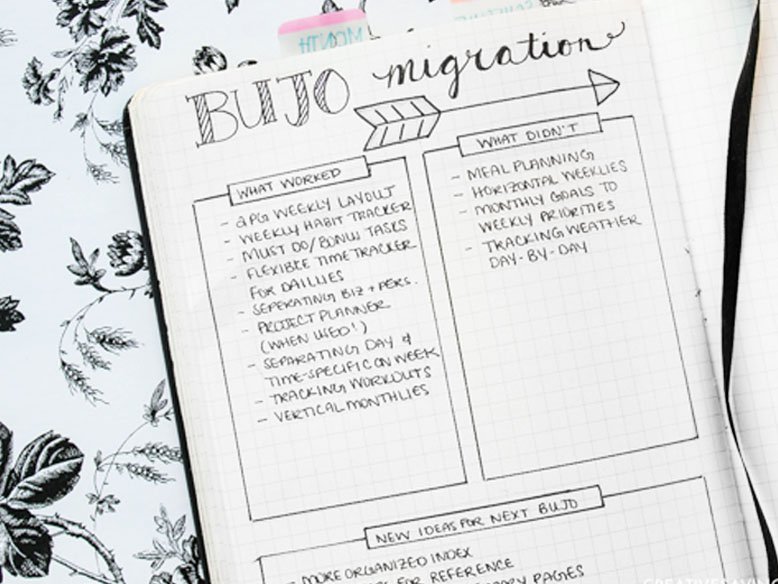 MONTH
BUJO migration
WHAT WORKED
- 2PG WEEKLY LAYOUT
- WEEKLY HABIT TRACKER
- MUST DO/BONUS TASKS
- FLEXIBLE TIME TRACKER
FOR DAILIES
- SEPERATING BIZ + PERS.
- PROJECT PLANNER
(WHEN USED!)
- SEPARATING DAY &
TIME-SPECIFIC ON WEEK
- TRACKING WORKOUTS
- VERTICAL MONTHLIES
WHAT DIDN'T
- MEAL PLANNING
- HORIZONTAL WEEKLIES
- MONTHLY GOALS TO
WEEKLY PRIORITIES
- TRACKING WEATHER
DAY-BY-DAY
NEW IDEAS FOR NEXT BUJO
- MORE ORGANIZED INDEX
FOR REFERENCE
PAGES